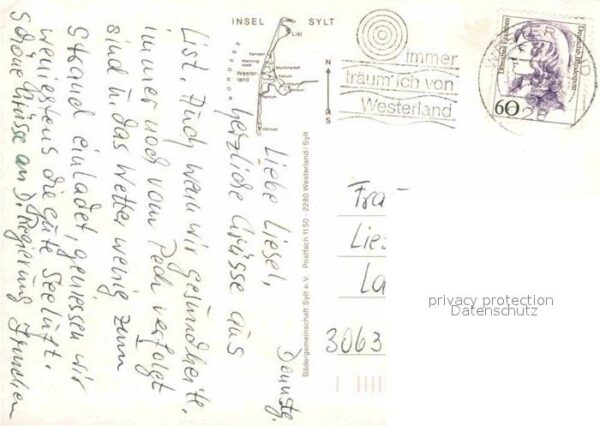 INSEL SYLT
List
Wester-
land
N
S
immer
träum' ich von
Westerland
Deutsche Bundespost
60
Bädergemeinschaft Sylt e.V. Postfach 1150 2280 Westerland/Sylt
Liebe Liesel,
herzliche Grüsse aus
List. Auch wenn wir gesundheitl.
immer noch vom Pech verfolgt
sind u. das Wetter wenig zum
Strand einladet, geniessen wir
wenigstens die gute Seeluft.
Schöne Grüsse an D. Regierung
Fra
Lies
La
3063
privacy protection
Datenschutz